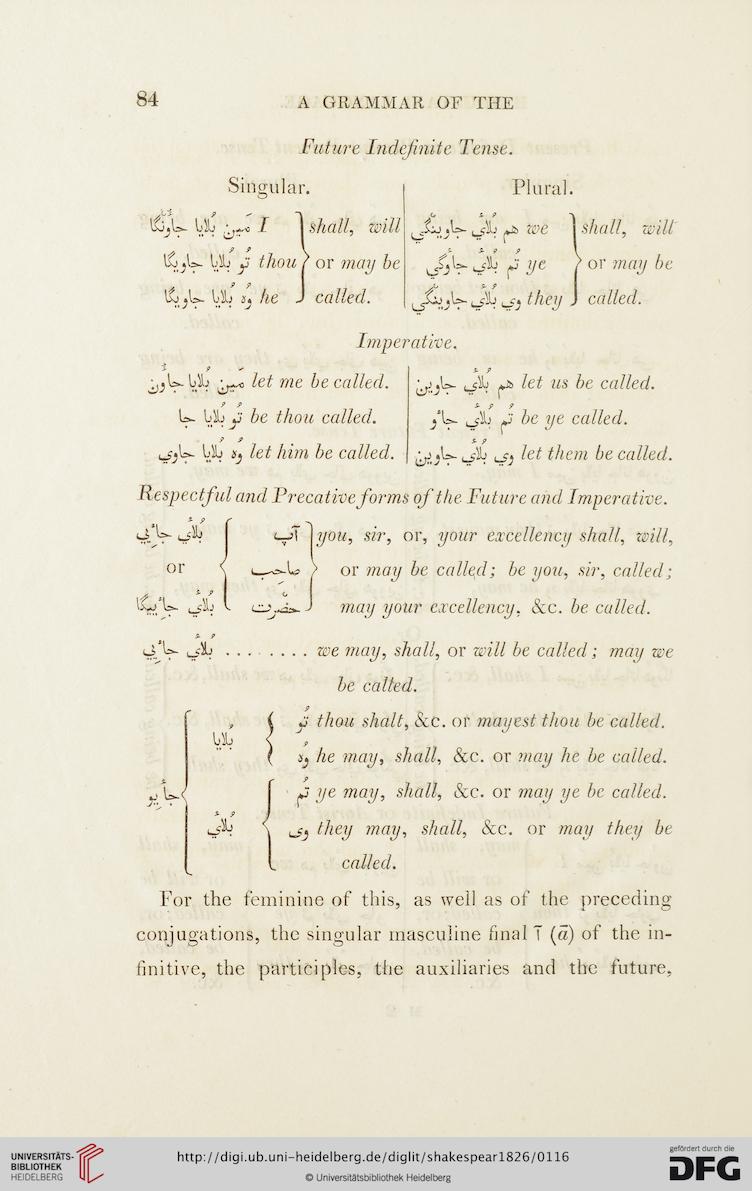 84 A GRAMMAR OF THE
Future Indefinite Tense.
Singular. Plural.
مَیں بُلایا جاؤُنگا I shall, will هم بُلائي جاوینگي we shall, will
تُو بُلایا جاویگا thou or may be تُم بُلائي جاوگي ye or may be
وُه بُلایا جاویگا he called. وي بُلائي جاوینگي they called.
Imperative.
مَیں بُلایا جاؤُں let me be called. هم بُلائي جاویں let us be called.
تُو بُلایا جا be thou called. تُم بُلائي جاؤ be ye called.
وُه بُلایا جاوي let him be called. وي بُلائي جاویں let them be called.
Respectful and Precative forms of the Future and Imperative.
بُلائي جائیي آپ you, sir, or, your excellency shall, will,
or صاحِب or may be called; be you, sir, called;
بُلائي جائییگا حضرت may your excellency, &c. be called.
بُلائي جائیي ........ we may, shall, or will be called; may we
be called.
تُو thou shalt, &c. or mayest thou be called.
بُلایا
وُه he may, shall, &c. or may he be called.
جائیو تُم ye may, shall, &c. or may ye be called.
بُلائي وي they may, shall, &c. or may they be
called.
For the feminine of this, as well as of the preceding
conjugations, the singular masculine final ا (ā) of the in-
finitive, the participles, the auxiliaries and the future,
UNIVERSITÄTS-
BIBLIOTHEK
HEIDELBERG
http://digi.ub.uni-heidelberg.de/diglit/shakespear1826/0116
© Universitätsbibliothek Heidelberg
gefördert durch die
DFG